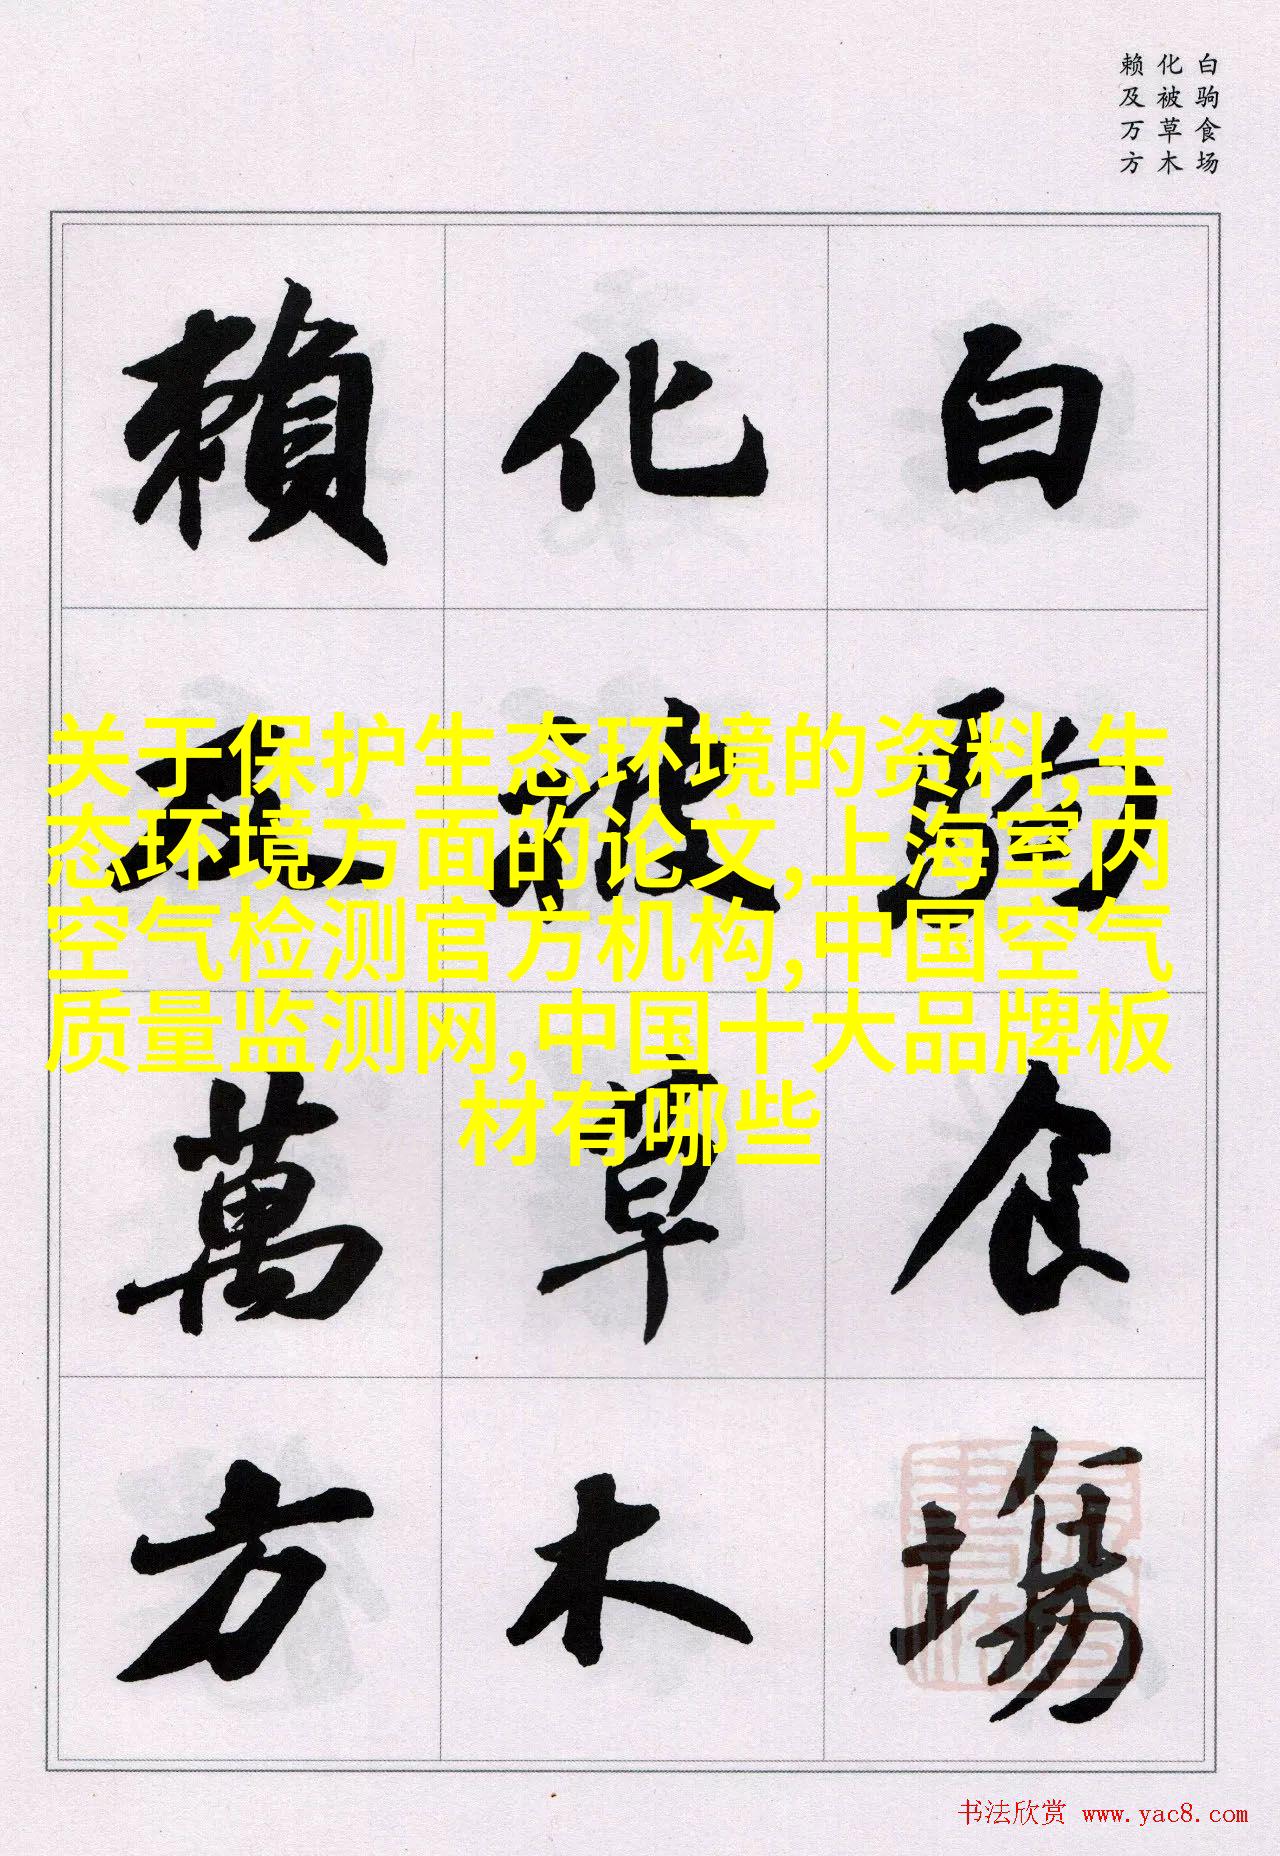 白驹食场
化被草木
赖及万方
白駒食場
化被草木
賴及萬方
关于保护生态环境的资料,生
态环境方面的论文,上海室内
空气检测官方机构,中国空气
质量监测网,中国十大品牌板
材有哪些
书法欣赏 www.yac8.com